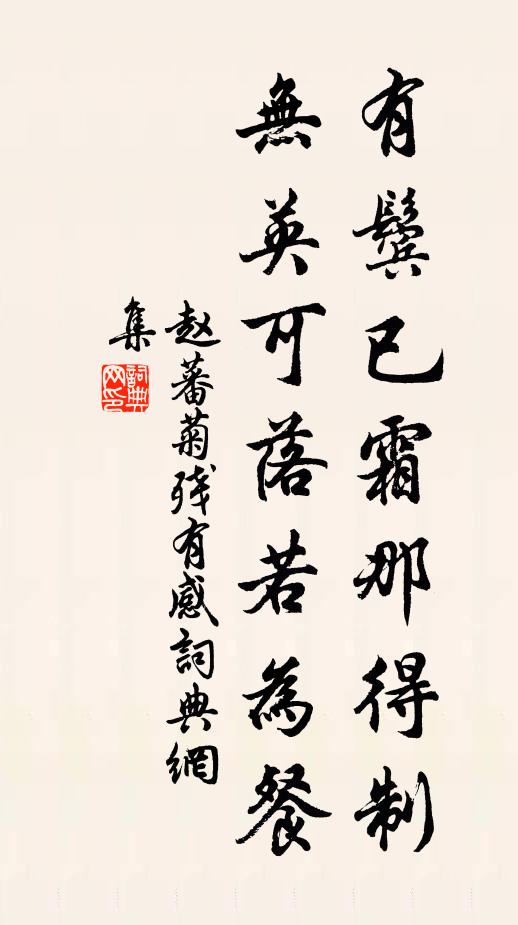 有鬓已霜那得制
無英可落若為餐
赵蕃菊残有感詞典網
集
詞典
网印